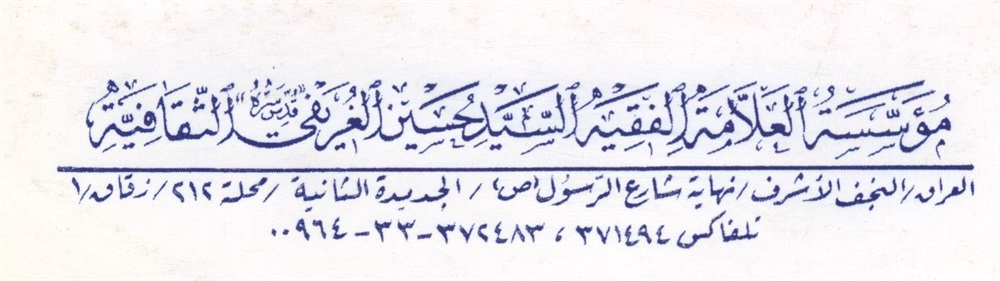 مُؤَسَّسَةُ العَلَّامَةِ الفَقِيهِ السَّيِّد حُسَيْن الغُرَيفي "قُدِّسَ سِرُّهُ" الثَّقَافِيَّةِ
العراق/النجف الأشرف/نهاية شارع الرّسول (ص)/ الجديدة الثانية / محلة ٢١٢/ زقاق/١
تلفاكس ٣٧١٤٩٤ ، ٣٧٢٤٨٣-٣٣-٠٠٩٦٤